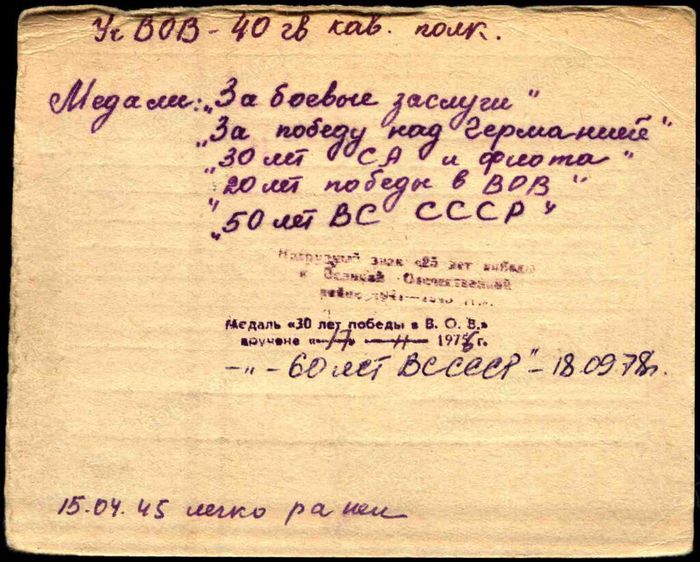 Уч ВОВ - 40 гв кав. полк.
Медали: „За боевые заслуги"
„За победу над Германией"
„30 лет СА и флота"
„20 лет победы в ВОВ"
„50 лет ВС СССР"
Нагрудный знак «25 лет победы
в Великой Отечественной
войне 1941—1945 гг.»
Медаль «30 лет победы в В. О. В.»
вручена «17» —"— 1976 г.
—"— 60 лет ВС СССР" - 18.09.78г.
15.04.45 легко ранен